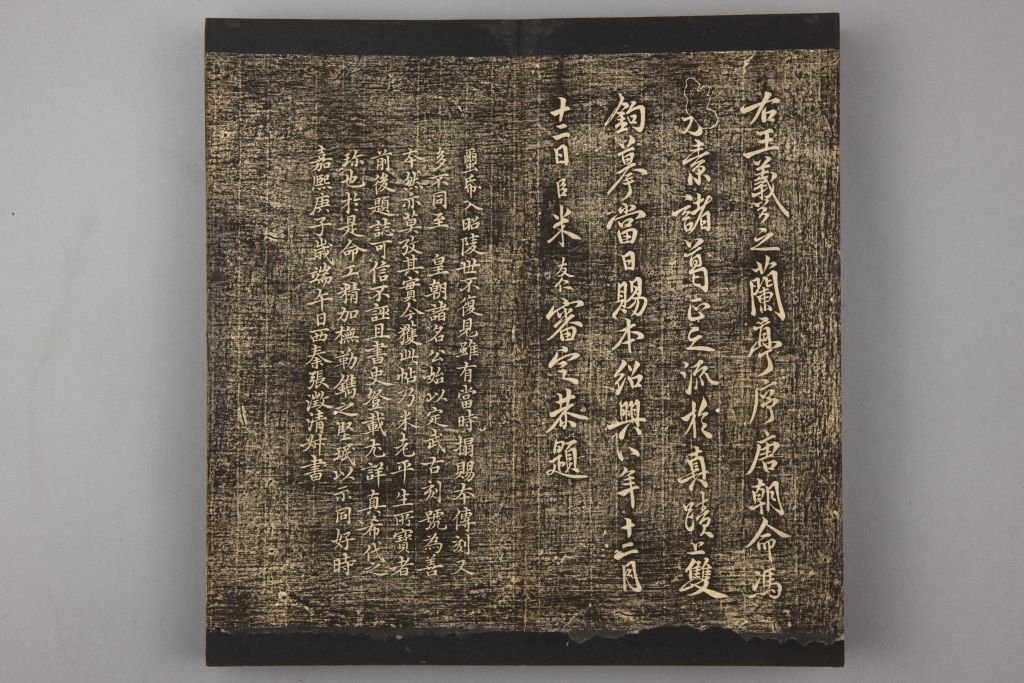 右王羲之蘭亭序唐朝命馮
承素諸葛正之流於真蹟上雙
鉤摹當日賜本紹興八年十二月
十二日臣米友仁審定恭題
繭帋入昭陵世不復見雖有當時搨賜本傳刻又
多不同至 皇朝諸名公始以定武古刻號為善
本然亦莫攷其實今獲此帖乃米老平生所寶者
前後題誌可信不誣且書史登載尤詳真希代之
珎也於是命工精加橅勒鐫之堅珉以示同好時
嘉熙庚子歲端午日西秦張澂清叔書